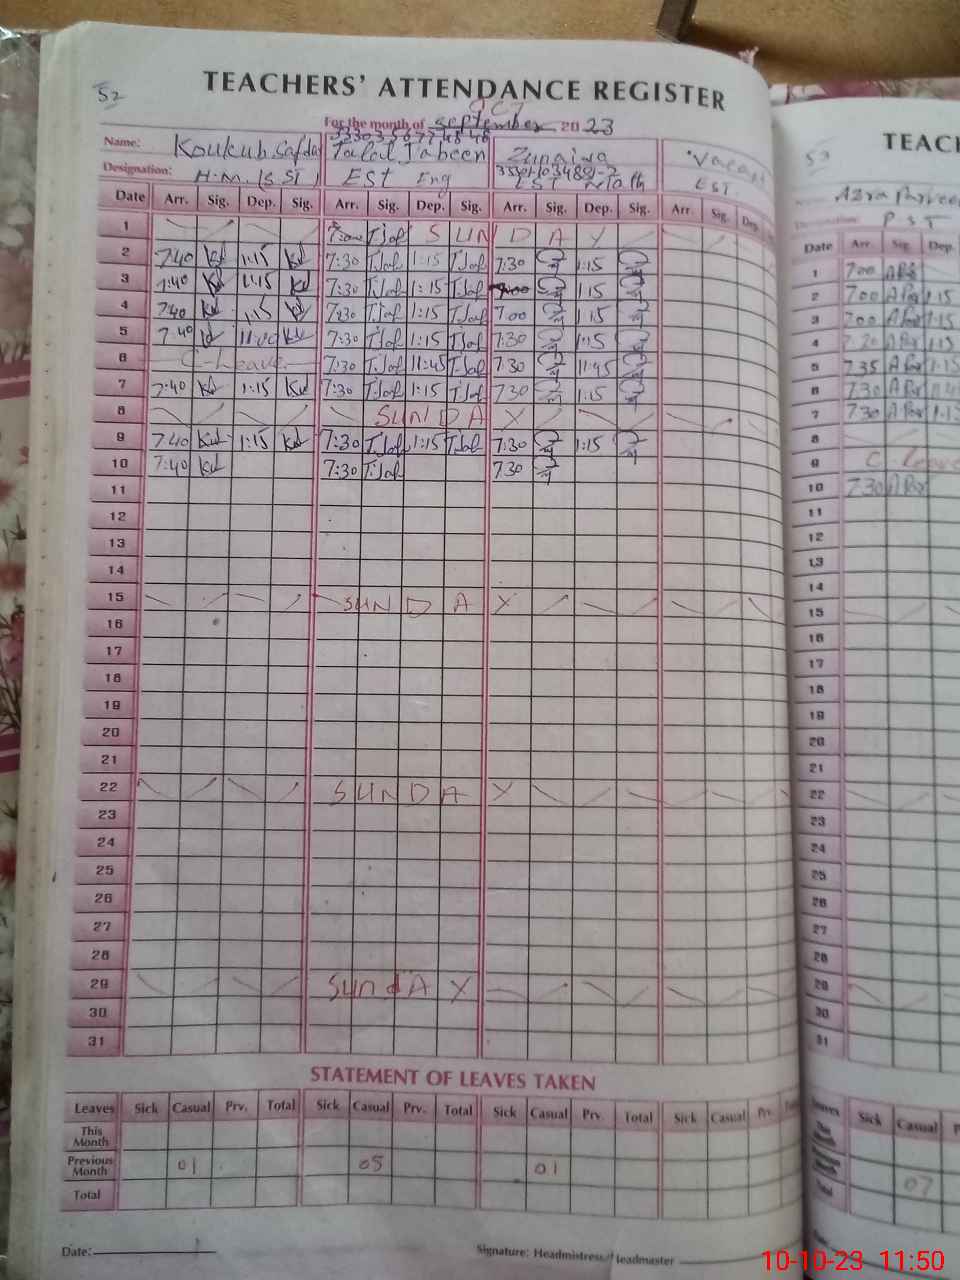 52
TEACHERS' ATTENDANCE REGISTER
OCT
For the month of September 2023
Name: Koukub Safdar Talat Jabeen Zunaira Vacant
Designation: H.M (S.ST) EST Eng EST Math EST.
Date Arr. Sig. Dep. Sig. Arr. Sig. Dep. Sig. Arr. Sig. Dep. Sig. Arr. Sig. Dep.
1 7:00 T.Jab S U N D A Y
2 7:40 1:15 7:30 T.Jab 1:15 T.Jab 7:30 1:15
3 7:40 1:15 7:30 T.Jab 1:15 T.Jab 1:15
4 7:40 1:15 7:30 T.Jab 1:15 T.Jab 7:00 1:15
5 7:40 11:00 7:30 T.Jab 1:15 T.Jab 7:30 1:15
6 C-Leave 7:30 T.Jab 11:45 T.Jab 7:30 11:45
7 7:40 1:15 7:30 T.Jab 1:15 T.Jab 730 1:15
8 S U N D A Y
9 7:40 1:15 7:30 T.Jab 1:15 T.Jab 7:30 1:15
10 7:40 7:30 T.Jab 730
11
12
13
14
15 S U N D A Y
16
17
18
19
20
21
22 S U N D A Y
23
24
25
26
27
28
29 S u n d A Y
30
31
STATEMENT OF LEAVES TAKEN
Leaves Sick Casual Prv. Total Sick Casual Prv. Total Sick Casual Prv. Total Sick Casual Prv.
This Month
Previous Month 01 05 01
Total
Date: Signature: Headmistress/Headmaster
TEACH
Azra Parveen
P.S.T
Date Arr. Sig. Dep.
1 700 A Par
2 700 A Par 1:15
3 700 A Par 1:15
4 A Par
5 735 A Par 1:15
6 730 A Par
7 730 A Par
8
9 C. leave
10 730 A Par
11
12
13
14
15
16
17
18
19
20
21
22
23
24
25
26
27
28
29
30
31
Sick Casual
07
10-10-23 11:50